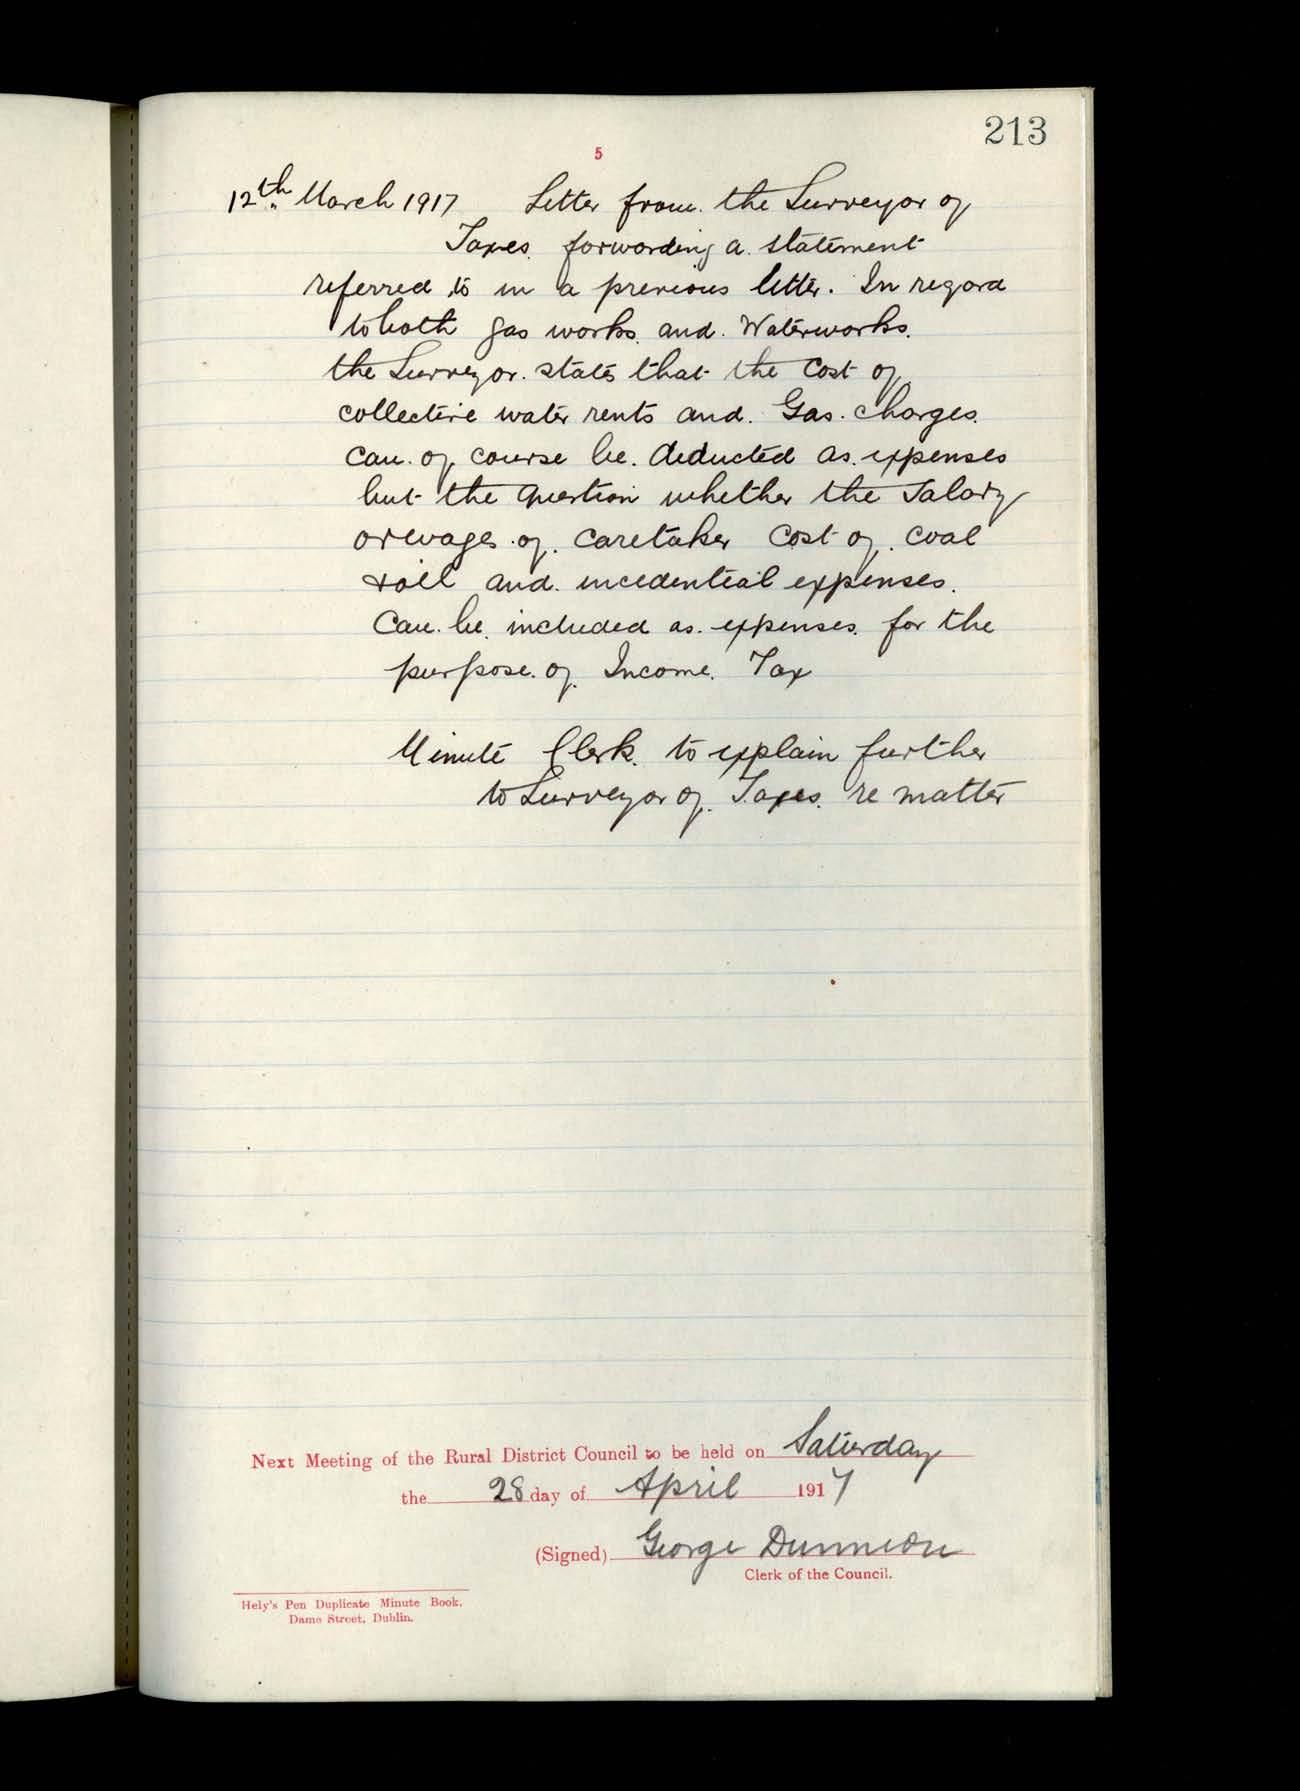 213
5
12th March 1917 Letter from the Surveyor of
Taxes forwarding a statement
referred to in a previous letter. In regard
to both gas works and Waterworks.
the Surveyor states that the cost of
collective water rents and Gas charges.
can of course be deducted as expenses
but the question whether the Salary
or wages of caretaker cost of coal
& oil and incedential expenses.
Can be included as expenses for the
purpose of Income Tax
Minute Clerk to explain further
to Surveyor of Taxes re matter
Next Meeting of the Rural District Council to be held on Saturday
the 28 day of April 1917
(Signed) George Dunnion
Clerk of the Council.
Hely's Pen Duplicate Minute Book.
Dame Street, Dublin.